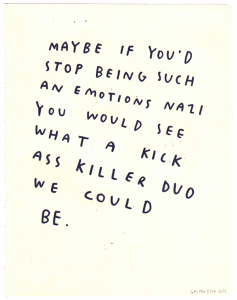 MAYBE IF YOU'D
STOP BEING SUCH
AN EMOTIONS NAZI
YOU WOULD SEE
WHAT A KICK
ASS KILLER DUO
WE COULD
BE.